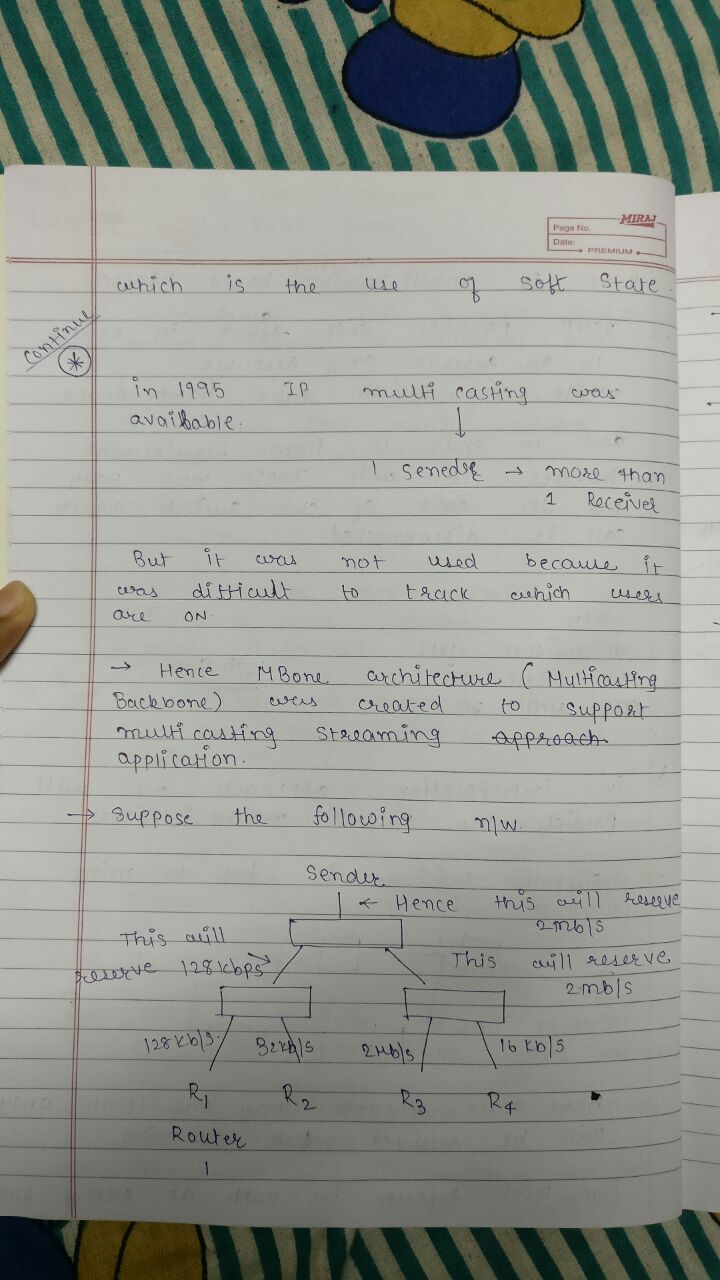 MIRAJ
Page No.
Date:
PREMIUM
which is the use of soft state.
continue
*
in 1995 IP multi casting was
available.
1 senedr → more than
1 Receiver
But it was not used because it
was difficult to track which users
are ON.
→ Hence MBone architecture (Multicasting
Backbone) was created to support
multi casting streaming approach
application.
→ suppose the following n/w.
Sender
← Hence this will reserve
2mb/s
This will
reserve 128kbps →
This will reserve
2mb/s
128Kb/s. 32kb/s 2Mb/s 16 Kb/s
R1 R2 R3 R4
Router
1